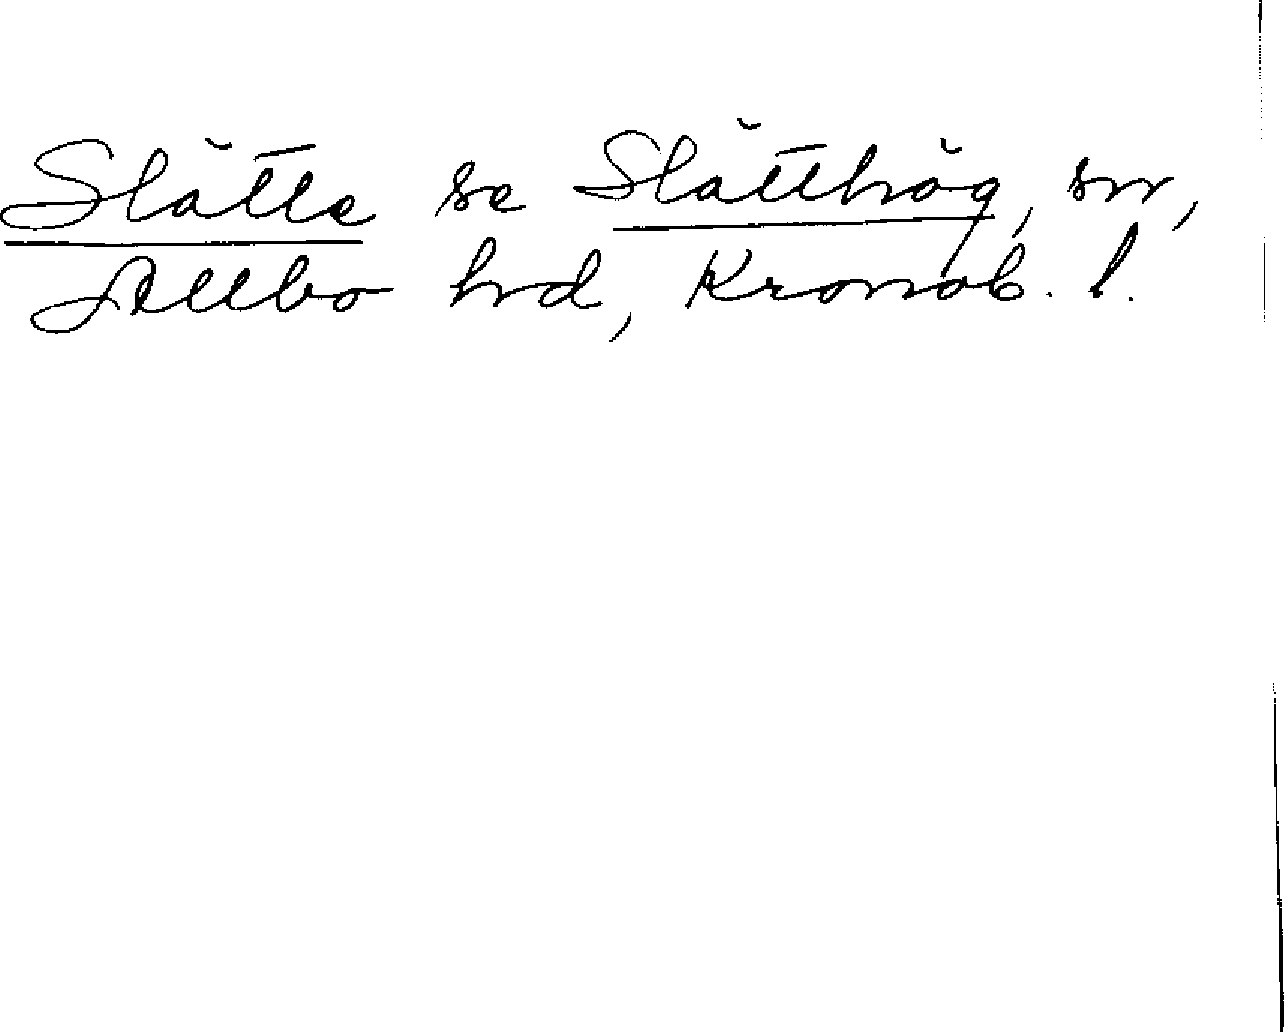 Slätte se Slätthög, sn,
Allbo hd, Kronob. l.